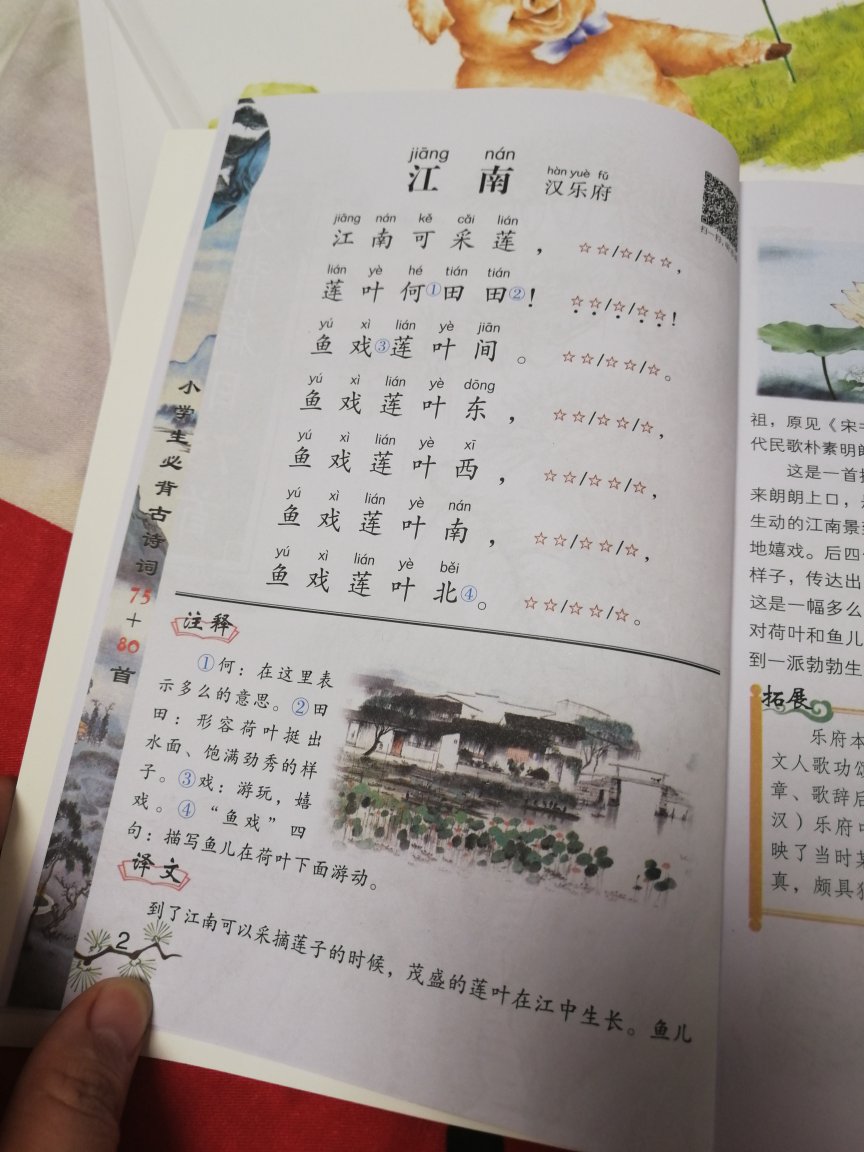 jiāng nán
江 南
hàn yuè fǔ
汉乐府
扫一扫
jiāng nán kě cǎi lián
江 南 可 采 莲 ， ☆☆/☆/☆☆，
lián yè hé tián tián
莲 叶 何①田 田②！ ☆☆/☆/☆☆！
yú xì lián yè jiān
鱼 戏③莲 叶 间 。 ☆☆/☆☆/☆。
yú xì lián yè dōng
鱼 戏 莲 叶 东 ， ☆☆/☆☆/☆，
yú xì lián yè xī
鱼 戏 莲 叶 西 ， ☆☆/☆☆/☆，
yú xì lián yè nán
鱼 戏 莲 叶 南 ， ☆☆/☆☆/☆，
yú xì lián yè běi
鱼 戏 莲 叶 北④。 ☆☆/☆☆/☆。
小学生必背古诗词75+80首
注释
①何：在这里表
示多么的意思。②田
田：形容荷叶挺出
水面、饱满劲秀的样
子。③戏：游玩，嬉
戏。④“鱼戏”四
句：描写鱼儿在荷叶下面游动。
译文
到了江南可以采摘莲子的时候，茂盛的莲叶在江中生长。鱼儿
2
祖，原见《宋书
代民歌朴素明朗
这是一首
来朗朗上口，
生动的江南景
地嬉戏。后四
样子，传达出
这是一幅多么
对荷叶和鱼儿
到一派勃勃生
拓展
乐府本
文人歌功颂
章、歌辞后
汉）乐府中
映了当时某
真，颇具